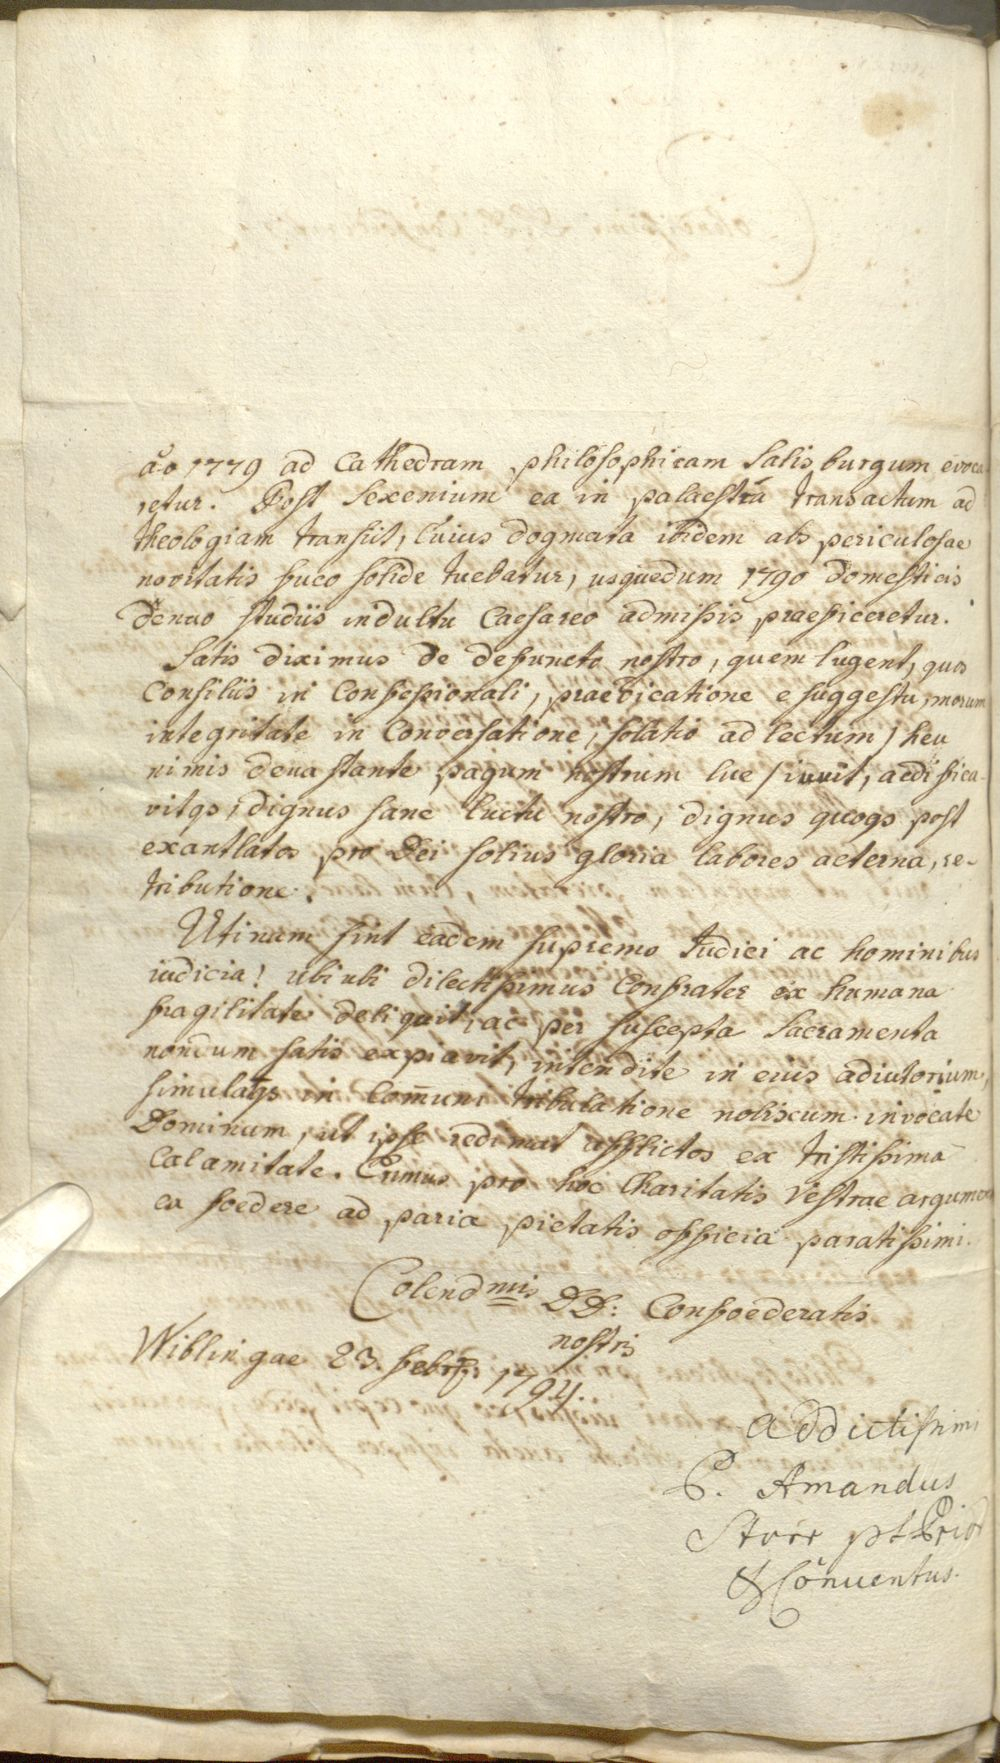 aō 1779 ad Cathedram philosophicam Salisburgum evoca
retur. Post Sexenium ea in palaestra transactum ad
theologiam transiit, Cuius dogmata ibidem abs periculosae
novitatis fuco solide tuebatur, usquedum 1790 domesticis
denuo studiis indultu Caesareo admissis praeficeretur.
Satis diximus de defuncto nostro, quem lugent, quos
Consiliis in Confessionali, praedicatione e suggestu, morum
integritate in Conversatione, solatio ad lectum / heu
nimis devastante pagum nostrum lue / iuvit, aedifica-
vitqs, dignus sane luctu nostro, dignus quoqs post
exantlatos pro Dei solius gloria labores aeterna re-
tributione.
Utinam sint eadem supremo Iudici ac hominibus
iudicia! ubi ubi dilectissimus Confrater ex humana
fragilitate deliquit, ac per suscepta Sacramenta
nondum satis expiavit, intendite in eius adiutorium,
simulatqs in Com̄uni tribulatione nobiscum invocate
Dominum, ut ipse redimat afflictos ex tristissima
Calamitate. Erimus pro hoc Charitatis Vestrae argumen
ex foedere ad paria pietatis officia paratissimi.
Colendmis DD: Confoederatis
nostris
Wiblingae 23. febr: 1794.
addictissimi
P. Amandus
Storr pt Prior
& Con̄uentus.